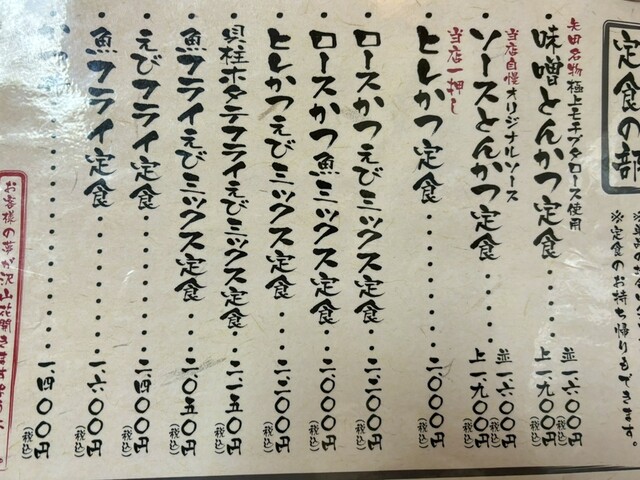 定食の部
※定食のお持ち帰りもできます。
矢田名物 極上モチブタロース使用
味噌とんかつ定食・・ 並一、六〇〇円(税込)
上一、九〇〇円(税込)
当店自慢オリジナルソース
ソースとんかつ定食・・・ 並一、六〇〇円(税込)
上一、九〇〇円(税込)
当店一押し
ヒレかつ定食・・・・・・・二、〇〇〇円(税込)
ロースかつえびミックス定食・・二、二〇〇円(税込)
ロースかつ魚ミックス定食・・二、〇〇〇円(税込)
ヒレかつえびミックス定食・・・二、二〇〇円(税込)
貝柱ホタテフライえびミックス定食・・二、一五〇円(税込)
魚フライえびミックス定食・・・二、〇五〇円(税込)
えびフライ定食・・・・・・・二、四〇〇円(税込)
魚フライ定食・・・・・・・一、六〇〇円(税込)
一、四〇〇円(税込)
お客様の華が沢山花開きます